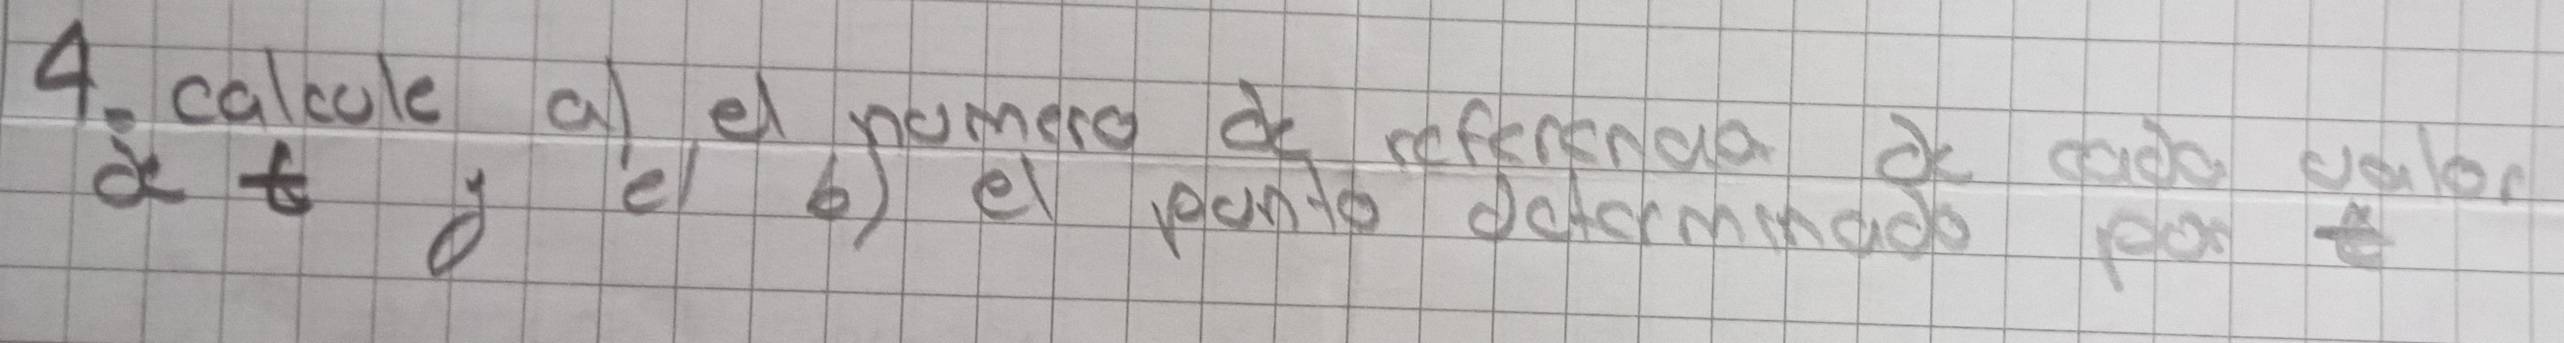 4. calcule a) el numero de referencia de cada valor
de t y el b) el punto determinado por t